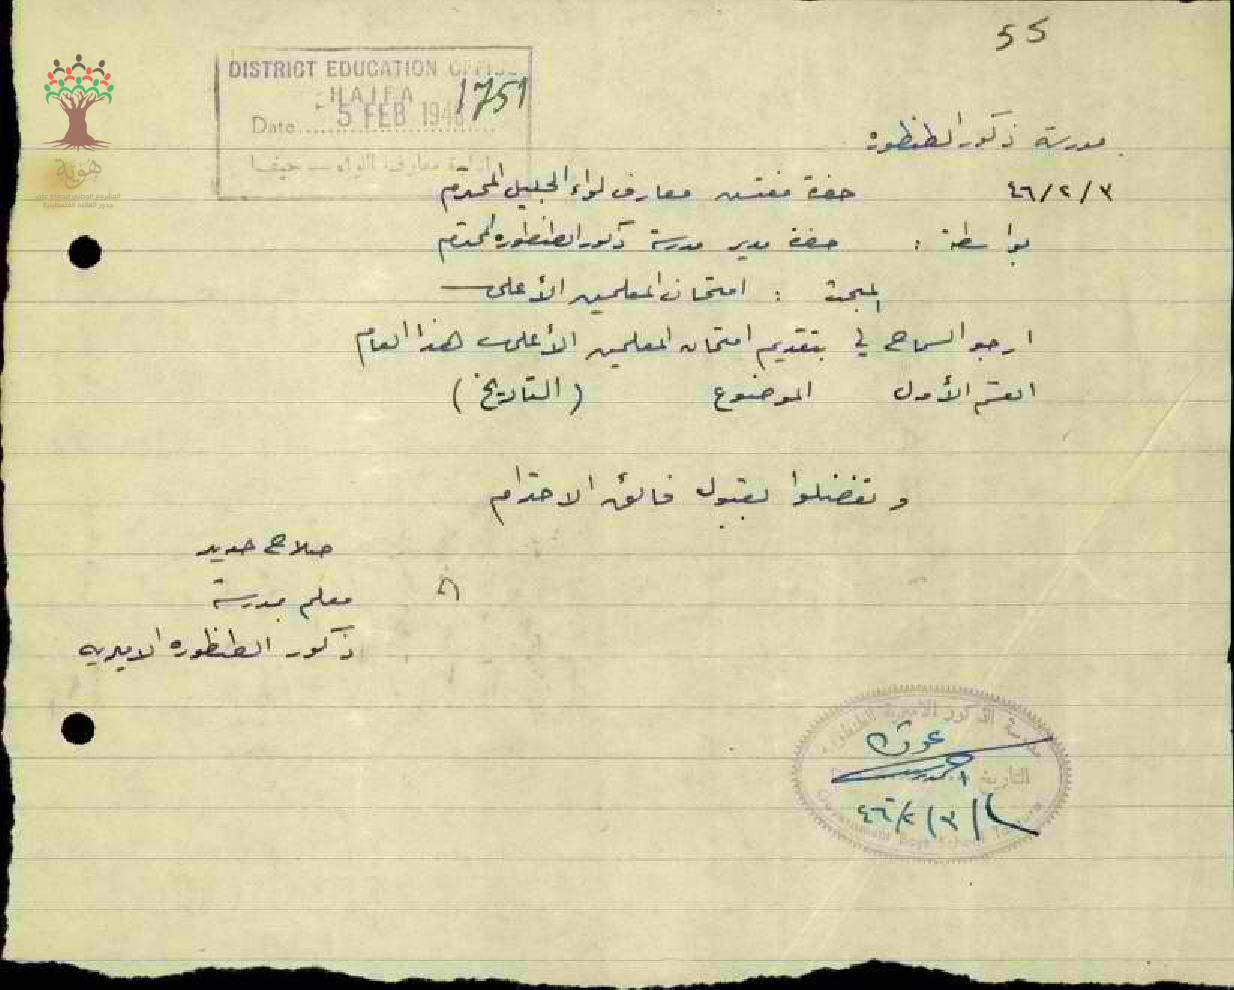 55
DISTRICT EDUCATION OFFICE
HAIFA
1751
Date 5 FEB 194
ادارة معارف اللواء – حيفا
هوية
مدرسة ذكور الطنطوره
٤٦/٢/٣
حضرة مفتش معارف لواء الجليل المحترم
بواسطة : حضرة مدير مدرسة ذكور الطنطوره المحترم
المبحث : امتحان المعلمين الأعلى
ارجو السماح لي بتقديم امتحان المعلمين الأعلى هذا العام
القسم الأول الموضوع (التاريخ)
وتفضلوا بقبول فائق الاحترام
صلاح حديد
معلم بمدرسة
ذكور الطنطوره الاميريه
مدرسة الذكور الأميرية الطنطورة
التاريخ
٤٦/٢/٣